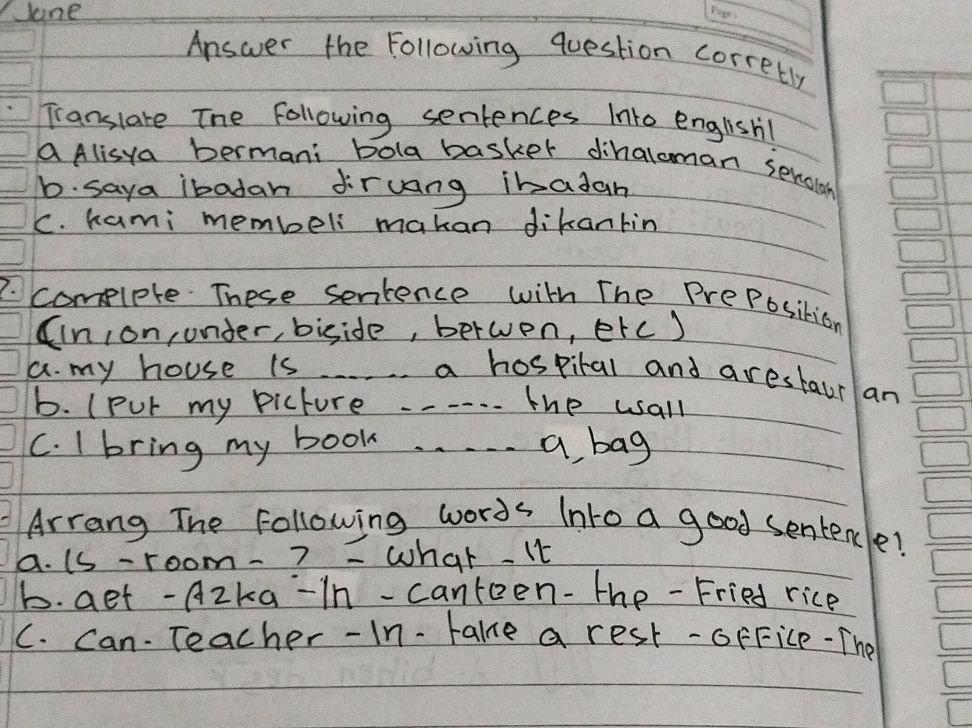 June
Page:
Answer the Following question corretly
Translate The Following sentences Into english!
a Alisya bermani bola basket dihalaman sekolah
b. saya ibadah diruang ibadah
c. kami membeli makan dikantin
2. complete These sentence with The Preposition
(in, on, under, biside, betwen, etc)
a. my house Is ...... a hospital and arestaur an
b. I Put my picture ------ the wall
c. I bring my book ..... a bag
Arrang The Following words Into a good sentence!
a. Is - room - ? - what - It
b. aet - Azka - In - canteen - the - Fried rice
c. can - Teacher - In - take a rest - office - The